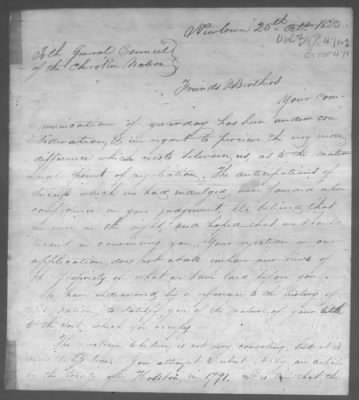 Newtown 25th Octr. 1823
To the General Council
of the Cherokee Nation
Friends & Brothers
Your Com-
munication of yesterday has been under con
sideration, & we regret to perceive the very wide
difference which exists between us, as to the
point of application. The anticipations of
which we had indulged, were founded upon
confidence in your judgement. We believed that
we were in the right and hoped that we should
succeed in convincing you. Your rejection of our
application does not at all our views of
the of what we have laid before you.
We have endeavored by a reference to the history of
this nation, to satisfy you of the nature of your title
to the soil, which you occupy.
The is not very consoling, but it is
You attempt to it by an article
in the treaty of Holston in 1791. It is that the